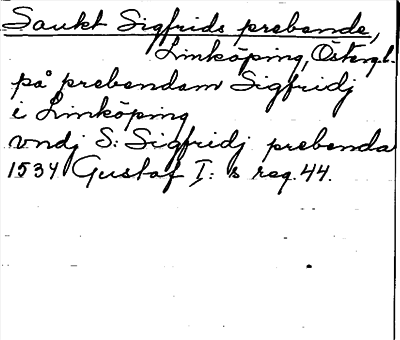 Sankt Sigfrids prebende,
Linköping, Östergl.
på prebendam Sigfridj
i Linköping
vndj S: Sigfridj prebenda
1534 Gustaf I:s reg. 44.